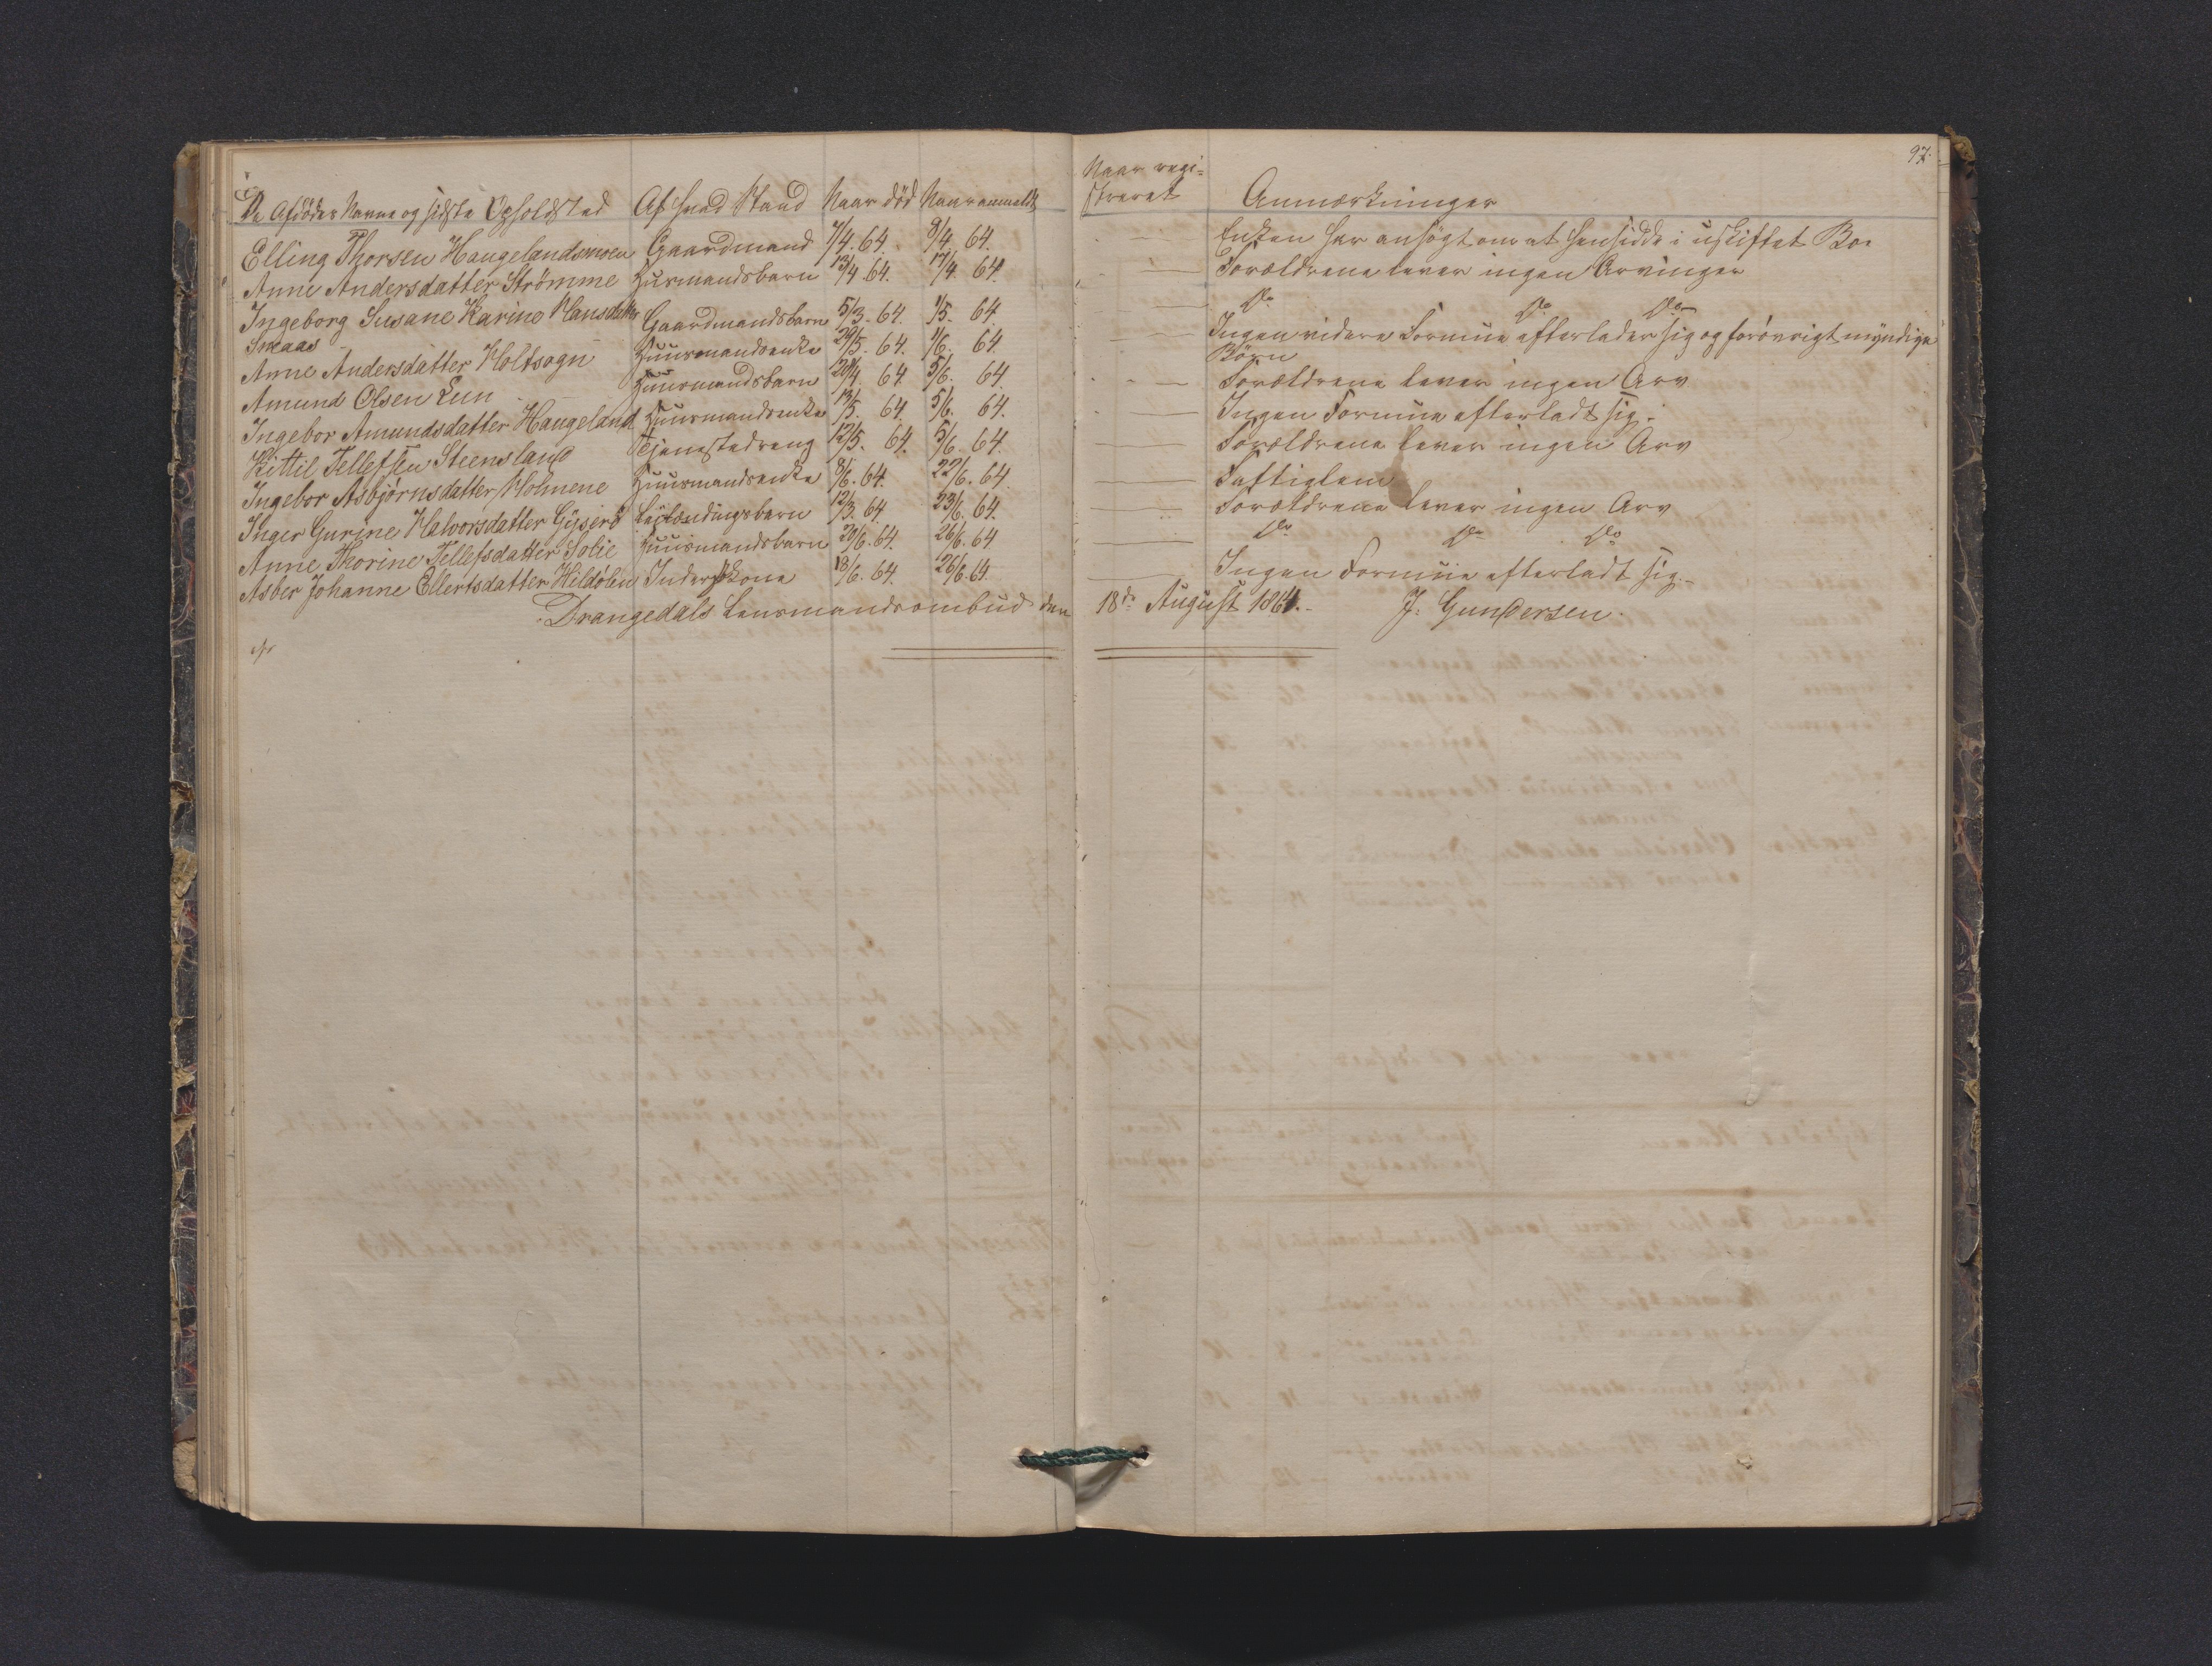 97.
De Afdødes Navne og sidste Opholdsted Af hvad Stand Naar død Naar anmeldt Naar regi-
streret Anmærkninger
Elling Thorsen Haugelandsmoen Gaardmand 7/4. 64. 9/4. 64. Enken har ansøgt om at hensidde i uskiftet Bo.
Anne Andersdatter Strömme Husmandsbarn 13/4. 64. 17/4. 64. Forældrene lever ingen Arvinger
Ingeborg Susane Karine Hansdatter Gaardmandsbarn 5/3. 64. 1/5. 64 Do Do Do
Sneaas
Anne Andersdatter Holtsogn Huusmandsenke 29/5. 64. 1/6. 64. Ingen videre Formue efterlader sig og forøvrigt myndige
Börn
Amund Olsen Lun Huusmandsbarn 20/4. 64. 5/6. 64. Forældrene lever ingen Arv
Ingebor Amundsdatter Haugeland Huusmandsenke 13/5. 64. 5/6. 64. Ingen Formue efterladt sig.
Kittil Tellefsen Steensland Tjenestedreng 12/5. 64. 5/6. 64. Forældrene lever ingen Arv
Ingebor Asbjørnsdatter Holmene Huusmandsenke 8/6. 64. 22/6. 64. Fattiglem
Inger Gurine Halvorsdatter Gjserö Leilændingsbarn 12/3. 64. 23/6. 64. Forældrene lever ingen Arv
Anne Thorine Tellefsdatter Solie Huusmandsbarn 20/6. 64. 26/6. 64 Do Do Do
Asber Johanne Ellertsdatter Hildölen Inderstkone 18/6. 64. 26/6. 64. Ingen Formue efterladt sig.
Drangedals Lensmandsombud den 18de August 1864. J. Gundersen.